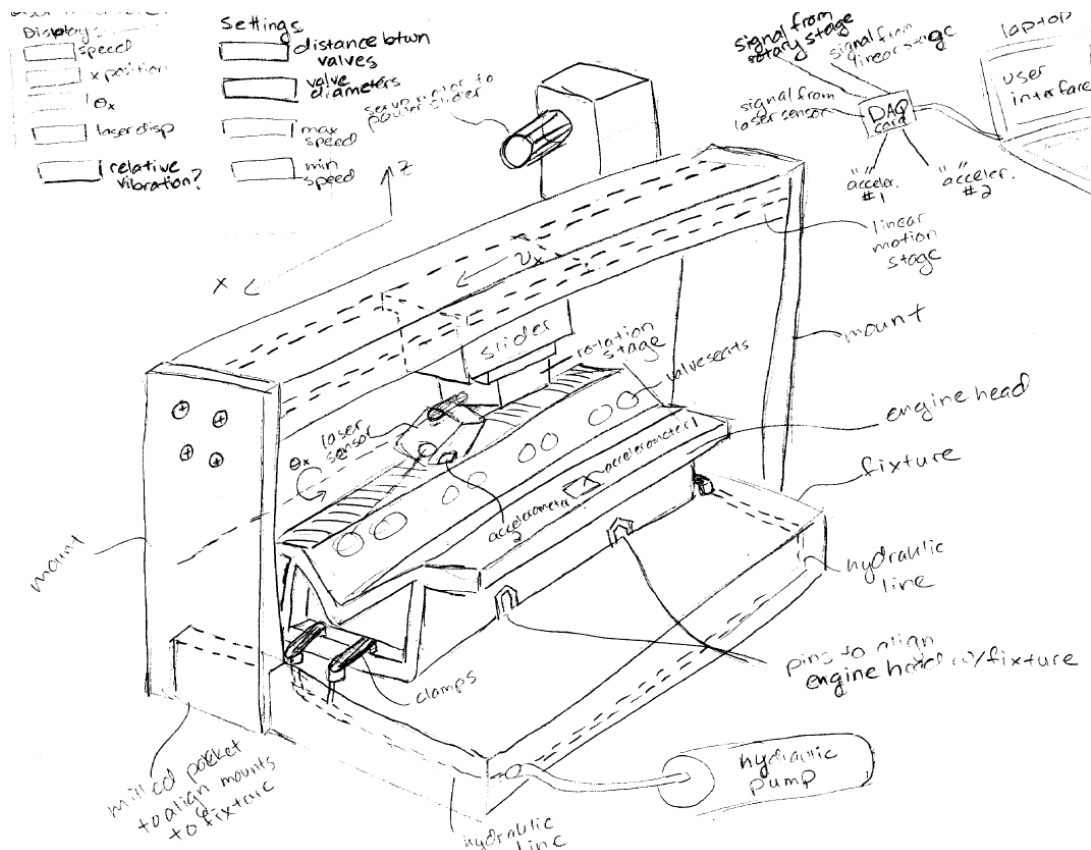 Display
speed
x position
θx
laser disp
relative
vibration?
Settings
distance btwn
valves
valve
diameters
max
speed
min
speed
servo motor to
power slider
signal from
rotary stage
signal from
linear stage
signal from
laser sensor
DAQ
card
" "
acceler.
#1
" "
acceler.
#2
laptop
user
interface
z
x
vx
linear
motion
stage
mount
slider
rotation
stage
valve seats
engine head
laser
sensor
θx
accelerometer 1
accelerometer
2
fixture
mount
hydraulic
line
clamps
pins to align
engine head w/fixture
milled pocket
to align mounts
to fixture
hydraulic
pump
hydraulic
line